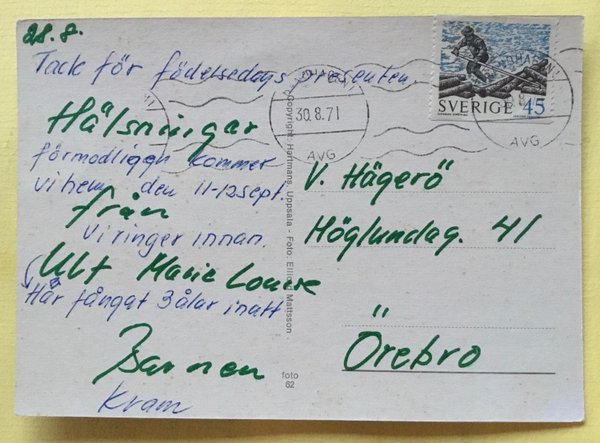 28.8.
Tack för födelsedags presenten.
Hälsningar
förmodligen kommer
vi hem den 11-12 sept.
från
Vi ringer innan.
Ulf Marie Louise
Har fångat 3 ålar inatt
Barnen
Kram
Copyright: Hartmans, Uppsala - Foto: Elliot Mattsson
foto
62
30.8.71
AVG
SVERIGE 45
AVG
V. Hägerö
Höglundag. 41
Örebro